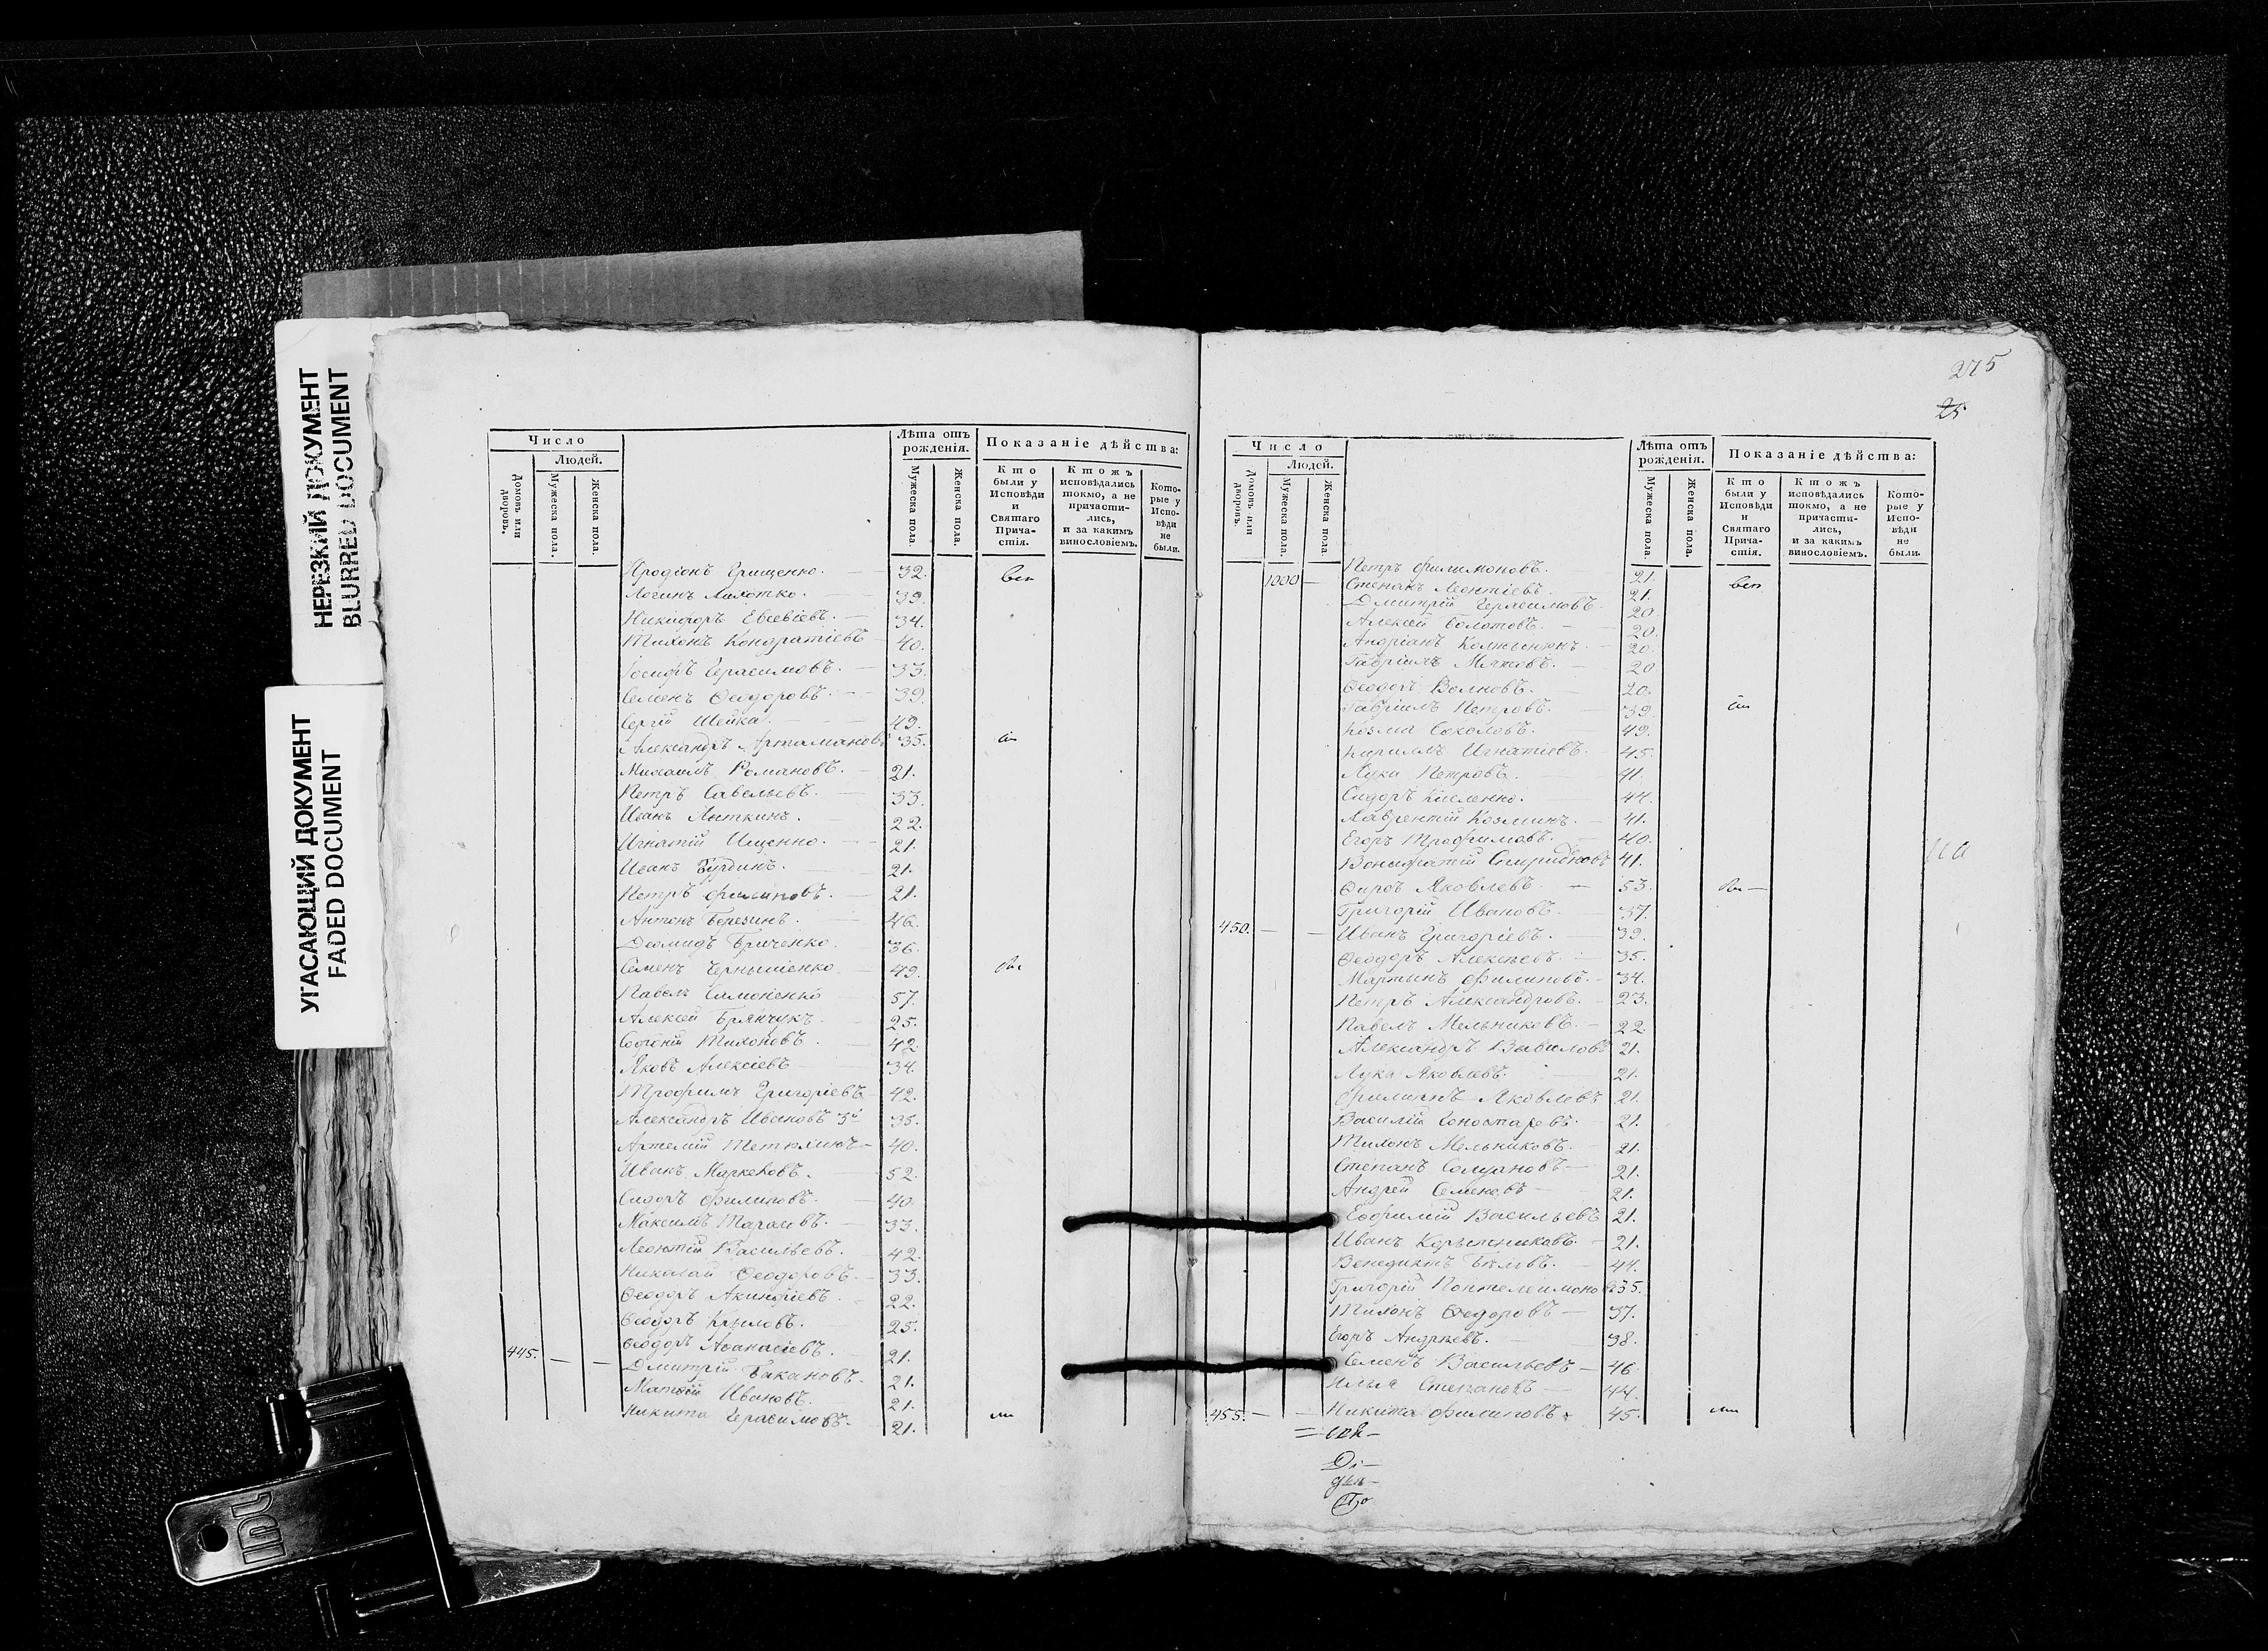 НЕРЕЗКИЙ ДОКУМЕНТ
BLURRED DOCUMENT
УГАСАЮЩИЙ ДОКУМЕНТ
FADED DOCUMENT
Число
Людей.
Домовъ или дворовъ.
Мужеска пола.
Женска пола.
Лѣта отъ рожденія.
Мужеска пола.
Женска пола.
Показаніе дѣйства:
Кто были у Исповѣди и Святаго Прича-стія.
Ктожъ исповѣдались токмо, а не причасти-лись, и за какимъ винословіемъ.
Кото-рые у Испо-вѣди не были.
Иродіонъ Грищенко. 32.
Логинъ 39.
Никифоръ Евсевіевъ. 34.
Тихонъ Кондратіевъ 40.
Іосифъ Герасимовъ. 33.
Семенъ Ѳеодоровъ. 39.
Сергій Шейка. 49.
Александръ Артамановъ 35.
Михаилъ Романовъ. 21.
Петръ Савельевъ. 33.
Иванъ Лыткинъ. 22.
Игнатій Ищенко. 21.
Иванъ Бурдинъ. 21.
Петръ Филиповъ. 21.
Антонъ Березинъ. 46.
Деомидъ Гриченко. 36.
Семенъ Чернышенко 49.
Павелъ Самоненко 57.
Алексей Брянчукъ. 25.
Софоній Тихоновъ. 42.
Яковъ Алексіевъ 34.
Трофимъ Григоріевъ 42.
Александръ Ивановъ 3й 35.
Артемій 40.
Иванъ 52.
Сидоръ Филиповъ. 40.
Максимъ Тарасовъ. 33.
Леонтій Васильевъ. 42.
Николай Ѳеодоровъ. 33.
Ѳеодоръ Акинѳіевъ. 22.
Ѳеодоръ Крыловъ. 25.
445. Ѳеодоръ Аѳанасіевъ. 21.
Дмитрій Бакановъ. 21.
Матвей Ивановъ. 21.
Никита Герасимовъ. 21.
275
25
Число
Людей.
Домовъ или дворовъ.
Мужеска пола.
Женска пола.
Лѣта отъ рожденія.
Мужеска пола.
Женска пола.
Показаніе дѣйства:
Кто были у Исповѣди и Святаго Прича-стія.
Ктожъ исповѣдались токмо, а не причасти-лись, и за какимъ винословіемъ.
Кото-рые у Испо-вѣди не были.
Петръ Филимоновъ. 21.
1000 Степанъ Леонтіевъ. 21.
Дмитрій Герасимовъ. 20
Алексей Болотовъ. 20.
Андріанъ 20.
Гавріилъ 20
Ѳеодоръ Волковъ. 20.
Гавріилъ Петровъ. 39.
Козма Соколовъ. 49.
Кирилъ Игнатіевъ. 45.
Лука Петровъ. 41.
Сидоръ Кисленко. 44.
Лаврентій Козминъ. 41.
Егоръ Трофимовъ. 40.
Вонифатій Спиридоновъ 41.
Яковлевъ. 53.
Григорій Ивановъ. 37.
450. Иванъ Григоріевъ. 39.
Ѳеодоръ Алексѣевъ. 35.
Мартынъ Филиповъ. 34.
Петръ Александровъ. 23.
Павелъ Мельниковъ. 22.
Александръ Вавиловъ 21.
Лука Яковлевъ. 21.
Филипъ Яковлевъ 21.
Василій 21.
Тихонъ Мельниковъ. 21.
Степанъ 21.
Андрей Семеновъ 21.
Евфимій Васильевъ 21.
Иванъ 21.
Венедиктъ Бѣловъ. 44.
Григорій Понтелеимоновъ 35.
Тихонъ Ѳедоровъ 37.
Егоръ Андрѣевъ. 38.
Семенъ Васильевъ 46.
Илья Степановъ 44.
455. Никита Филиповъ 45.